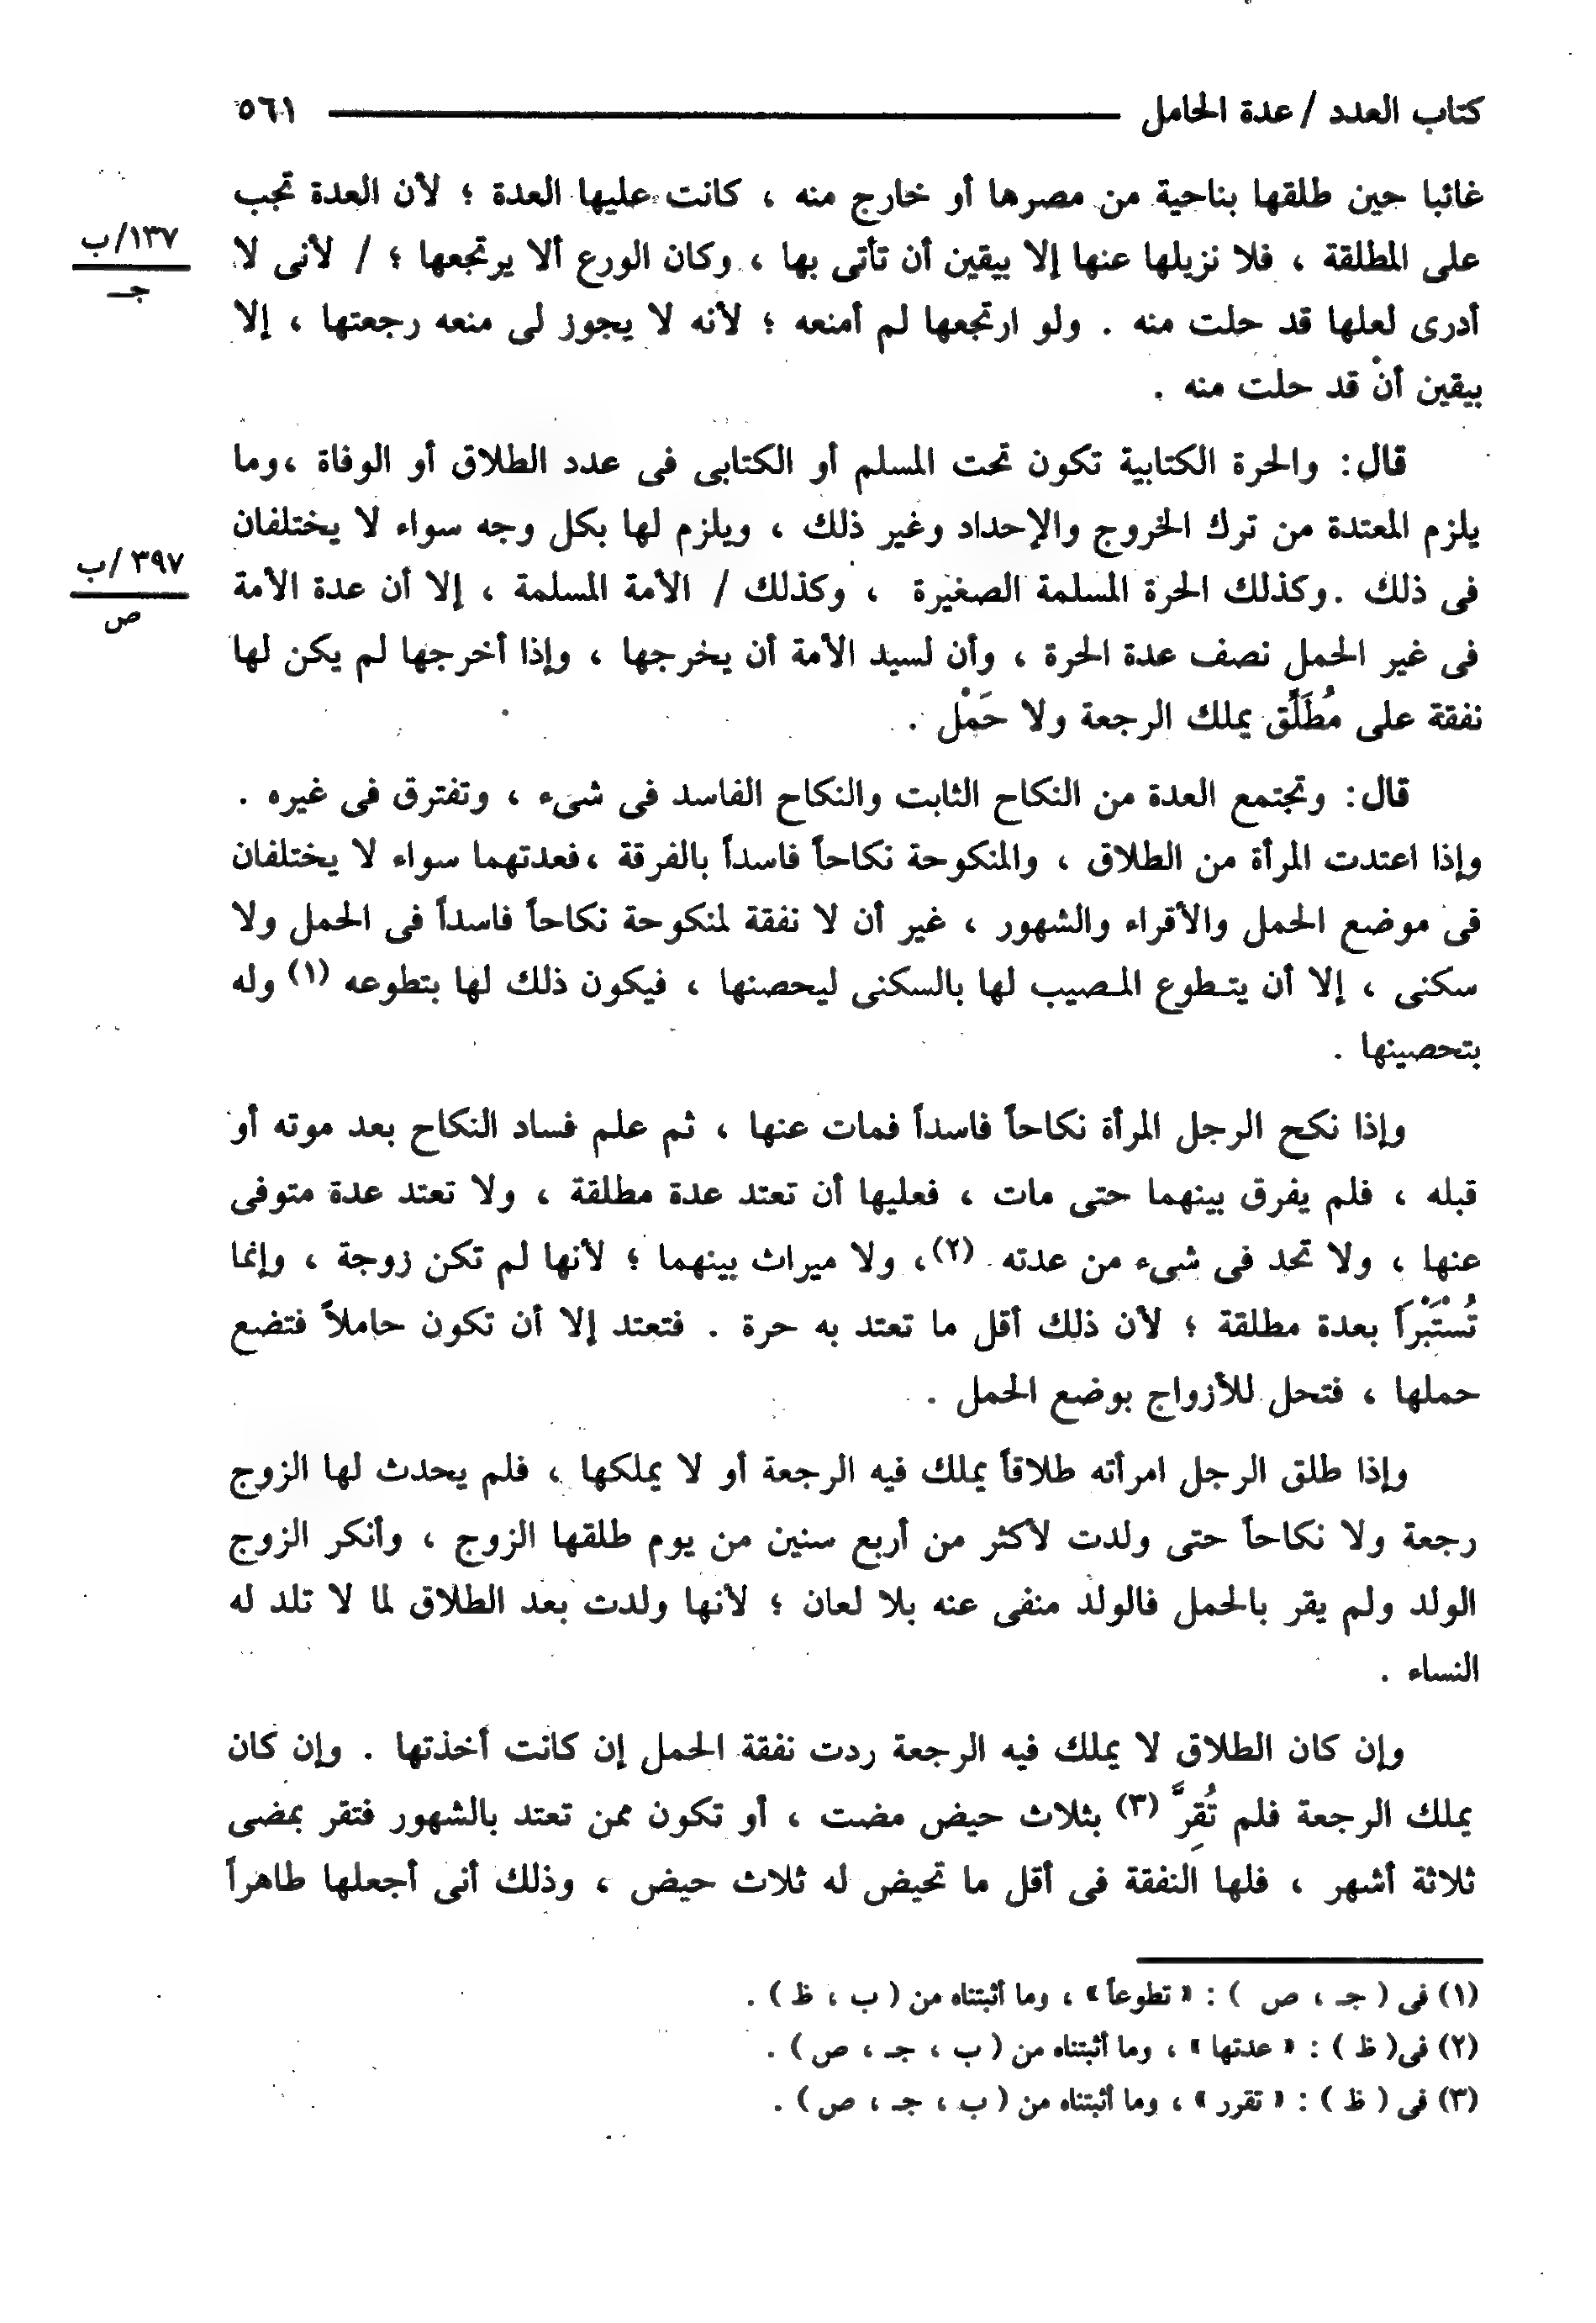 كتاب العدد / عدة الحامل ٥٦١
غائبا حين طلقها بناحية من مصرها أو خارج منه ، كانت عليها العدة ؛ لأن العدة تجب
على المطلقة ، فلا نزيلها عنها إلا بيقين أن تأتى بها ، وكان الورع ألا يرتجعها ؛ / لأنى لا
١٣٧/ب
جـ
أدرى لعلها قد حلت منه . ولو ارتجعها لم أمنعه ؛ لأنه لا يجوز لى منعه رجعتها ، إلا
بيقين أنْ قد حلت منه .
قال: والحرة الكتابية تكون تحت المسلم أو الكتابى فى عدد الطلاق أو الوفاة ،وما
يلزم المعتدة من ترك الخروج والإحداد وغير ذلك ، ويلزم لها بكل وجه سواء لا يختلفان
فى ذلك .وكذلك الحرة المسلمة الصغيرة ، وكذلك / الأمة المسلمة ، إلا أن عدة الأمة
٣٩٧/ب
ص
فى غير الحمل نصف عدة الحرة ، وأن لسيد الأمة أن يخرجها ، وإذا أخرجها لم يكن لها
نفقة على مُطَلِّق يملك الرجعة ولا حَمْل .
قال: وتجتمع العدة من النكاح الثابت والنكاح الفاسد فى شىء ، وتفترق فى غيره .
وإذا اعتدت المرأة من الطلاق ، والمنكوحة نكاحاً فاسداً بالفرقة ،فعدتهما سواء لا يختلفان
فى موضع الحمل والأقراء والشهور ، غير أن لا نفقة لمنكوحة نكاحاً فاسداً فى الحمل ولا
سكنى ، إلا أن يتـطوع المـصيب لها بالسكنى ليحصنها ، فيكون ذلك لها بتطوعه (١) وله
بتحصينها .
وإذا نكح الرجل المرأة نكاحاً فاسداً فمات عنها ، ثم علم فساد النكاح بعد موته أو
قبله ، فلم يفرق بينهما حتى مات ، فعليها أن تعتد عدة مطلقة ، ولا تعتد عدة متوفى
عنها ، ولا تحد فى شىء من عدته (٢)، ولا ميراث بينهما ؛ لأنها لم تكن زوجة ، وإنما
تُسْتَبْرَأ بعدة مطلقة ؛ لأن ذلك أقل ما تعتد به حرة . فتعتد إلا أن تكون حاملاً فتضع
حملها ، فتحل للأزواج بوضع الحمل .
وإذا طلق الرجل امرأته طلاقاً يملك فيه الرجعة أو لا يملكها ، فلم يحدث لها الزوج
رجعة ولا نكاحاً حتى ولدت لأكثر من أربع سنين من يوم طلقها الزوج ، وأنكر الزوج
الولد ولم يقر بالحمل فالولد منفى عنه بلا لعان ؛ لأنها ولدت بعد الطلاق لما لا تلد له
النساء .
وإن كان الطلاق لا يملك فيه الرجعة ردت نفقة الحمل إن كانت أخذتها . وإن كان
يملك الرجعة فلم تُقِرَّ (٣) بثلاث حيض مضت ، أو تكون ممن تعتد بالشهور فتقر بمضى
ثلاثة أشهر ، فلها النفقة فى أقل ما تحيض له ثلاث حيض ، وذلك أنى أجعلها طاهراً
(١) فى ( جـ ، ص ) : « تطوعاً » ، وما أثبتناه من ( ب ، ظ ) .
(٢) فى( ظ ) : « عدتها » ، وما أثبتناه من ( ب ، جـ ، ص ) .
(٣) فى ( ظ ) : « تقرر » ، وما أثبتناه من ( ب ، جـ ، ص ) .